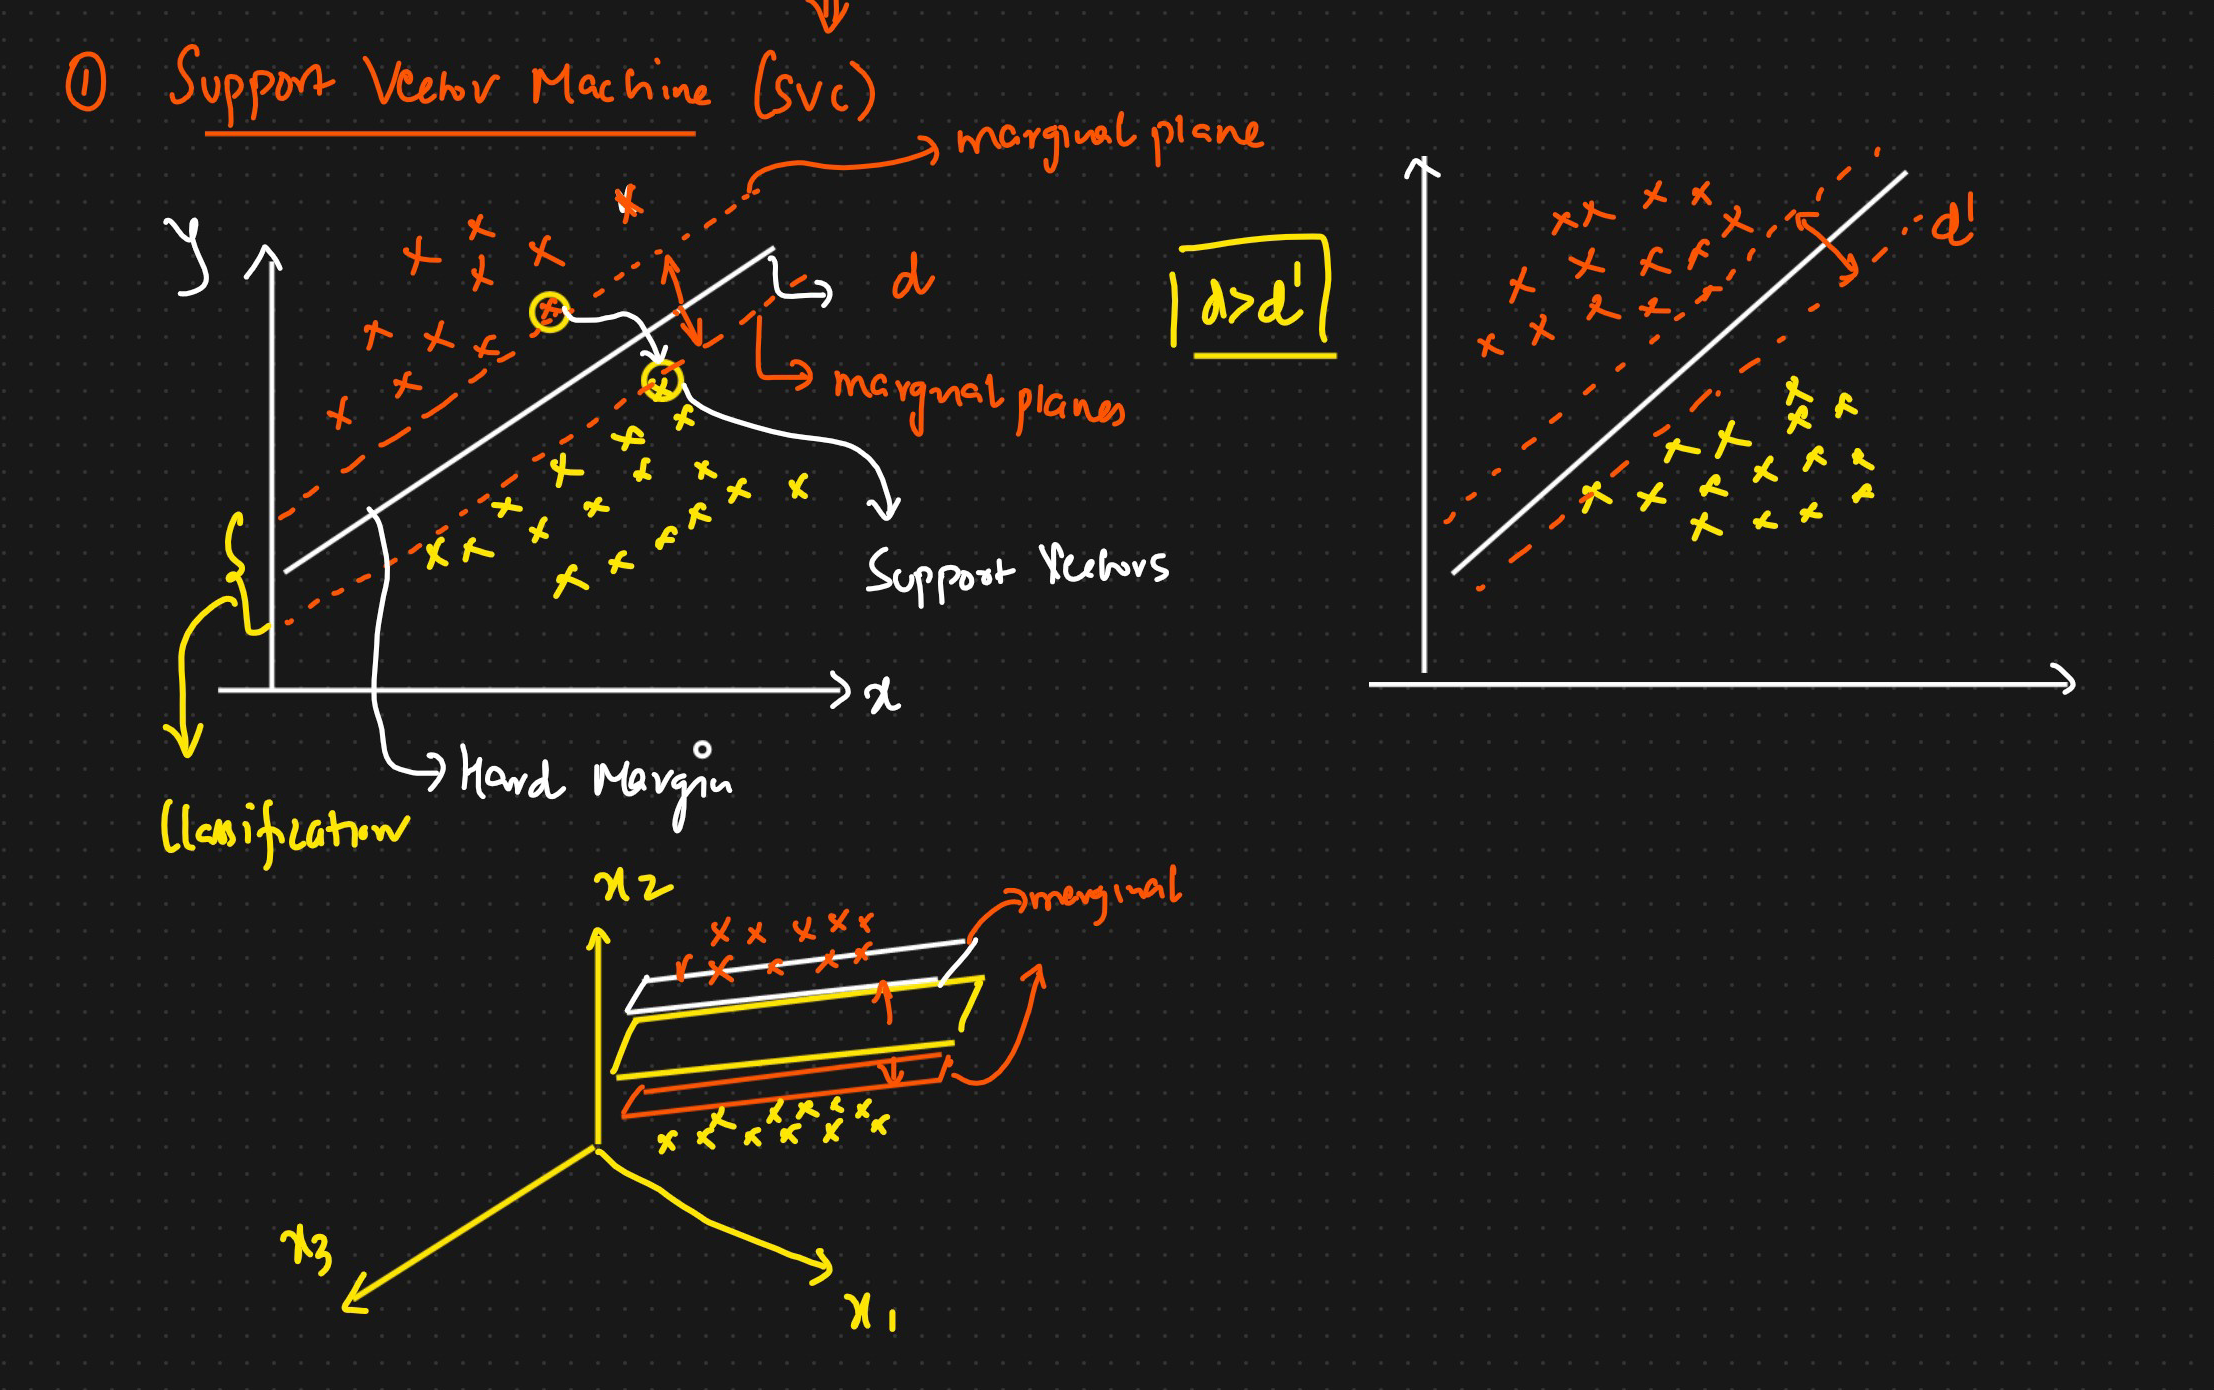 ① Support Vector Machine (SVC)
marginal plane
y
d
d'
d>d'
marginal planes
Support Vectors
x
Hard Margin
Classification
x2
marginal
x3
x1